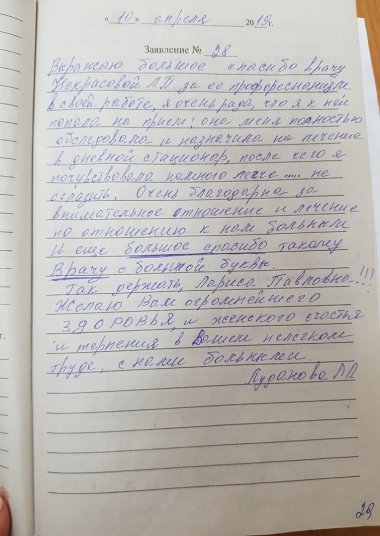 « 10 » апреля 2019г.
Заявление № 28
Выражаю большое спасибо врачу
Некрасовой Л.П. за ее профоресионализм
в своей работе, я очень рада, что я к ней
попала на прием! она меня полностью
обследовала и назначила на лечение
в дневной стационар, после чего я
почувствовала намного легче .... не
сглазить. Очень благодарна за
внимательное отношение и лечение
по отношению к нам больным
И еще большое спасибо такому
Врачу с большой буквы.
Так держать, Лариса Павловна!!!
Желаю Вам огромнейшего
ЗДОРОВЬЯ, и женского счастья
и терпения в Вашем нелегком
труде, с нами больными.
ЛП
г.
29